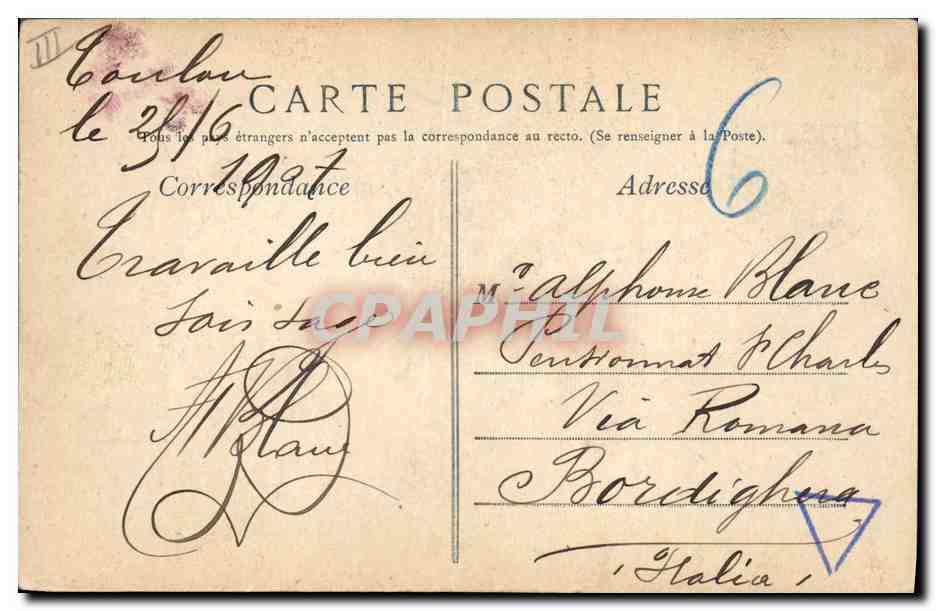 III
Toulon
le 25/6
1907
CARTE POSTALE
Tous les pays étrangers n'acceptent pas la correspondance au recto. (Se renseigner à la Poste).
6
Correspondance
Travaille bien
sois sage
A Blanc
Adresse
Mr Alphonse Blanc
Pensionnat St Charles
Via Romana
Bordighera
Italia
CPAPHIL